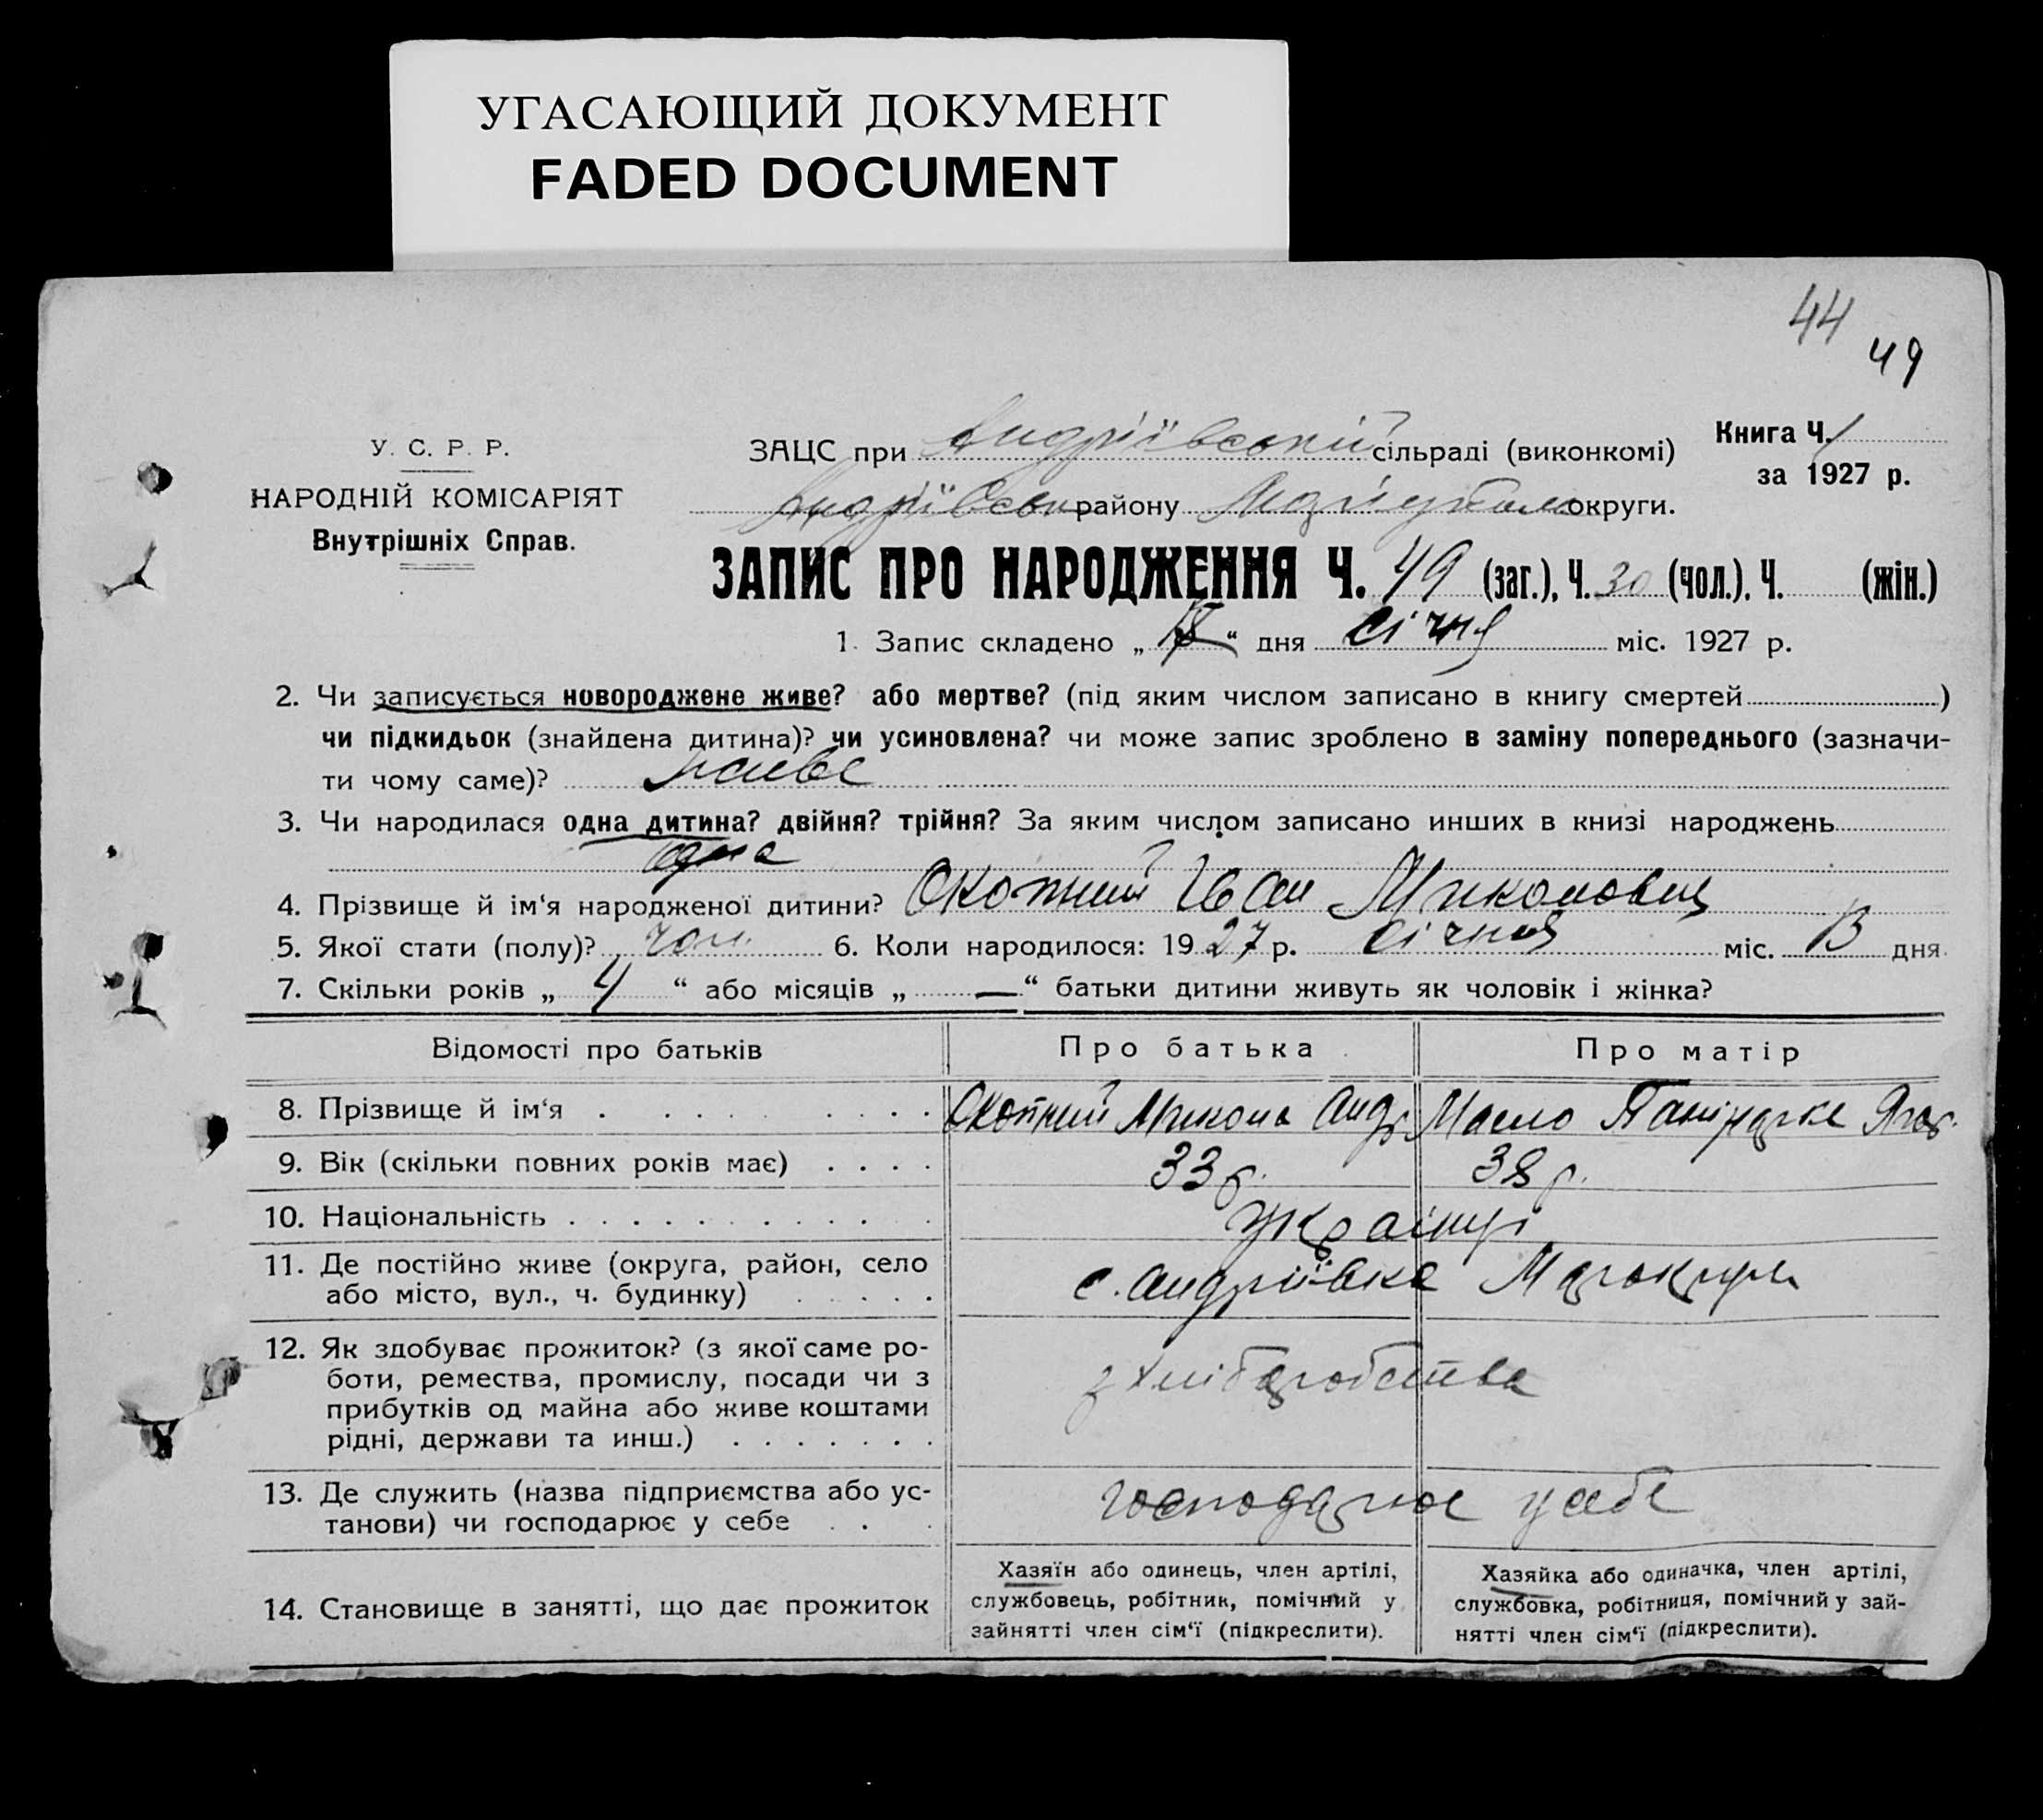 УГАСАЮЩИЙ ДОКУМЕНТ
FADED DOCUMENT
44
49
У. С. Р. Р.
НАРОДНІЙ КОМІСАРІЯТ
Внутрішніх Справ.
ЗАЦС при Андріївській сільраді (виконкомі)
Книга Ч. 1
за 1927 р.
Андріївськ району округи.
ЗАПИС ПРО НАРОДЖЕННЯ Ч. 49 (заг.), Ч. 30 (чол.). Ч. (жін.)
1. Запис складено „ “ дня січня міс. 1927 р.
2. Чи записується новороджене живе? або мертве? (під яким числом записано в книгу смертей )
чи підкидьок (знайдена дитина)? чи усиновлена? чи може запис зроблено в заміну попереднього (зазначи-
ти чому саме)? живе
3. Чи народилася одна дитина? двійня? трійня? За яким числом записано инших в книзі народжень
одна
4. Прізвище й ім‘я народженої дитини? Окопний Іван Миколович
5. Якої стати (полу)? чол. 6. Коли народилося: 1927 р. січня міс. 13 дня
7. Скільки років „ 4 “ або місяців „ — “ батьки дитини живуть як чоловік і жінка?
Відомості про батьків Про батька Про матір
8. Прізвище й ім‘я Окопний Микола Андр Масло
9. Вік (скільки повних років має) 33 р. 38 р.
10. Національність Українці
11. Де постійно живе (округа, район, село
або місто, вул., ч. будинку) с. Андріївка
12. Як здобуває прожиток? (з якої саме ро-
боти, ремества, промислу, посади чи з
прибутків од майна або живе коштами
рідні, держави та инш.) з хліборобства
13. Де служить (назва підприємства або ус-
танови) чи господарює у себе господарює у себе
14. Становище в занятті, що дає прожиток
Хазяїн або одинець, член артілі,
службовець, робітник, помічний у
зайнятті член сім‘ї (підкреслити).
Хазяйка або одиначка, член артілі,
службовка, робітниця, помічний у зай-
нятті член сім‘ї (підкреслити).